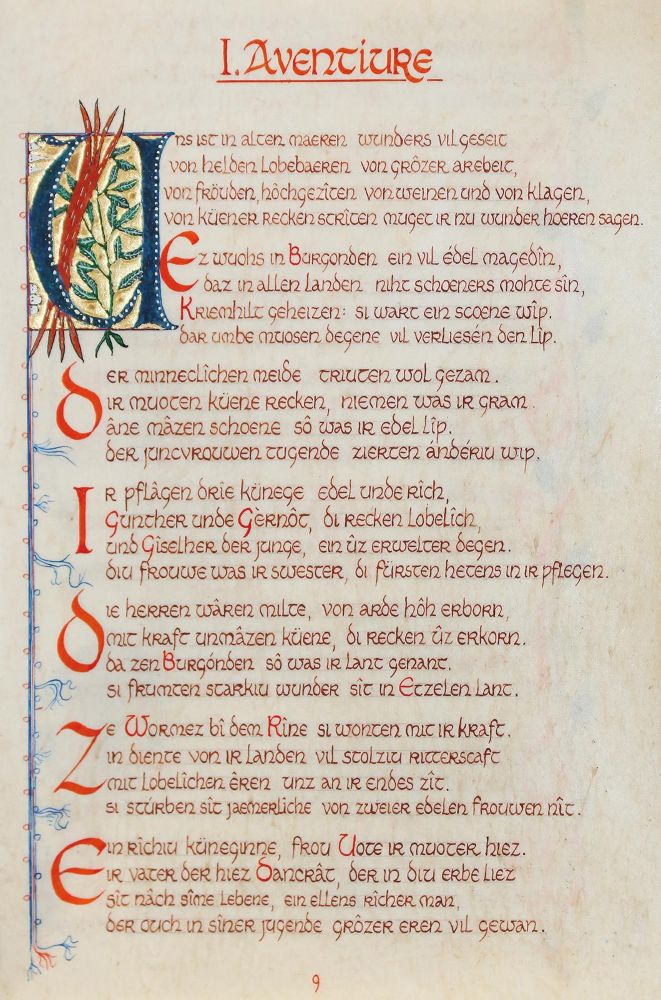 I. Aventiure
Uns ist in alten maeren wunders vil geseit
von helden lobebaeren von grôzer arebeit,
von fröuden, hôchgezîten von weinen und von klagen,
von küener recken strîten muget ir nu wunder hoeren sagen.
Ez wuohs in Burgonden ein vil édel magedîn,
daz in allen landen niht schoeners mohte sîn,
Kriemhilt geheizen: si wart ein scoene wîp.
dar umbe muosen degene vil verliesén den lîp.
Der minneclîchen meide triuten wol gezam.
ir muoten küene recken, niemen was ir gram.
âne mâzen schoene sô was ir edel lîp.
der juncvrouwen tugende zierten ándériu wip.
Ir pflâgen drîe künege edel unde rîch,
Gunther unde Gèrnôt, di recken lobelîch,
und Gîselher der junge, ein ûz erwelter degen.
diu frouwe was ir swester, di fürsten hetens in ir pflegen.
Die herren wâren milte, von arde hôh erborn,
mit kraft unmâzen küene, di recken ûz erkorn.
da zen Burgónden sô was ir lant genant.
si frumten starkiu wunder sît in Etzelen lant.
Ze Wormez bî dem Rîne si wonten mit ir kraft.
in diente von ir landen vil stolziu ritterscaft
mit lobelîchen êren unz an ir endes zît.
si stúrben sît jaemerlîche von zweier edelen frouwen nît.
Ein rîchiu küneginne, frou Uote ir muoter hiez.
ir vater der hiez Dancrât, der in diu erbe liez
sît nâch sîme lebene, ein ellens rîcher man,
der ouch in sîner jugende grôzer eren vil gewan.
9